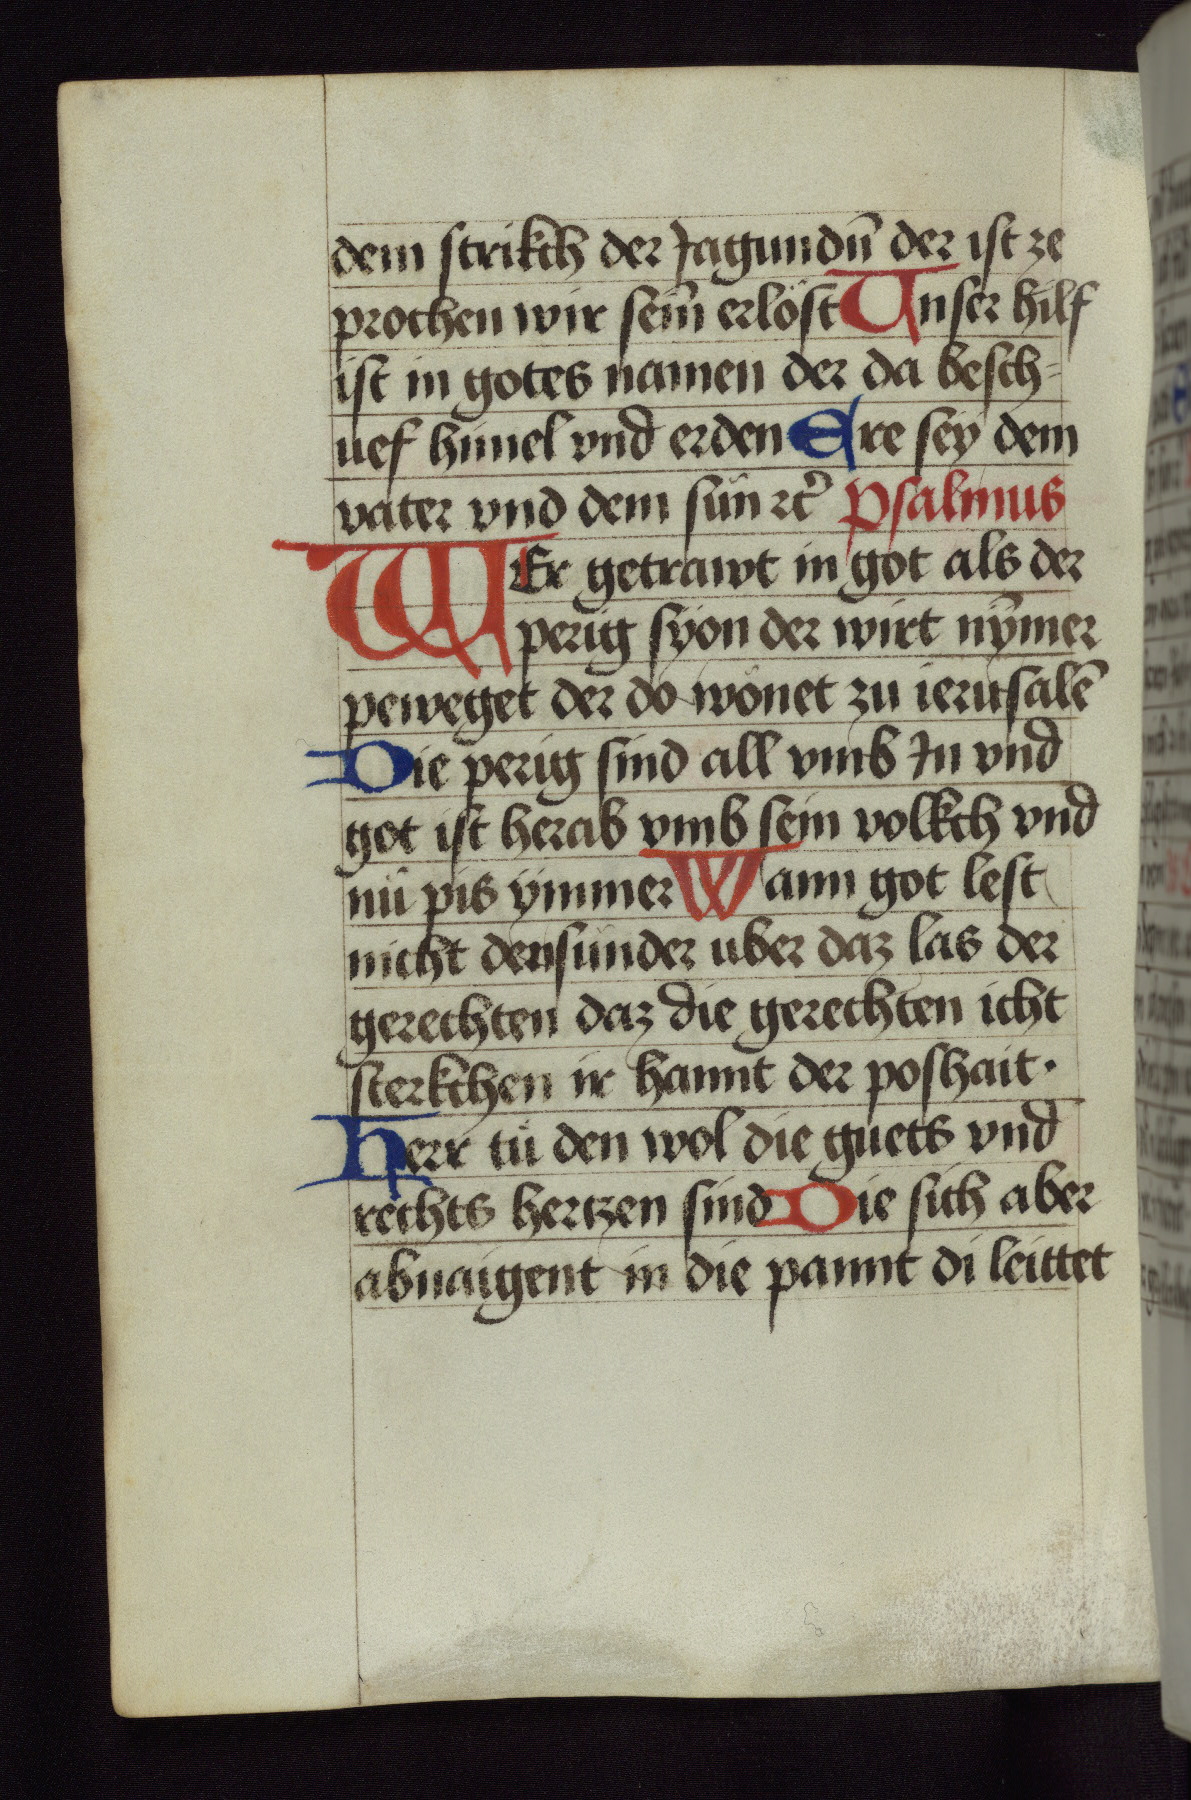 dem strikch der Jagundn̄ der ist ze
prochen wir sein̄ erlöst Unser hilf
ist in gotes namen der da besch-
uef himel vnd erden Ere sey dem
vater vnd dem sün ꝛc̄ Psalmus
WEr getrawt in got als der
perig syon der wirt nӯmer
peweget der do wonet zu ierusalē
Die perig sind all vmb Jn vnd
got ist herab vmb sein volkch vnd
nü pis ӱmmer Wann got lest
nicht den sünder uber daz las der
gerechten daz die gerechten icht
sterkchen ir hannt der poshait·
Herr tü den wol die guets vnd
rechts hertzen sind Die sich aber
abnaigent in die pannt di leittet